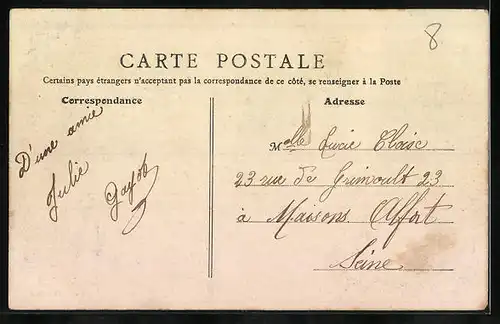 8
CARTE POSTALE
Certains pays étrangers n'acceptant pas la correspondance de ce côté, se renseigner à la Poste
Correspondance
Adresse
D'une amie
Julie
Melle Lucie
23 rue de Grimoult 23
à Maisons Alfort
Seine